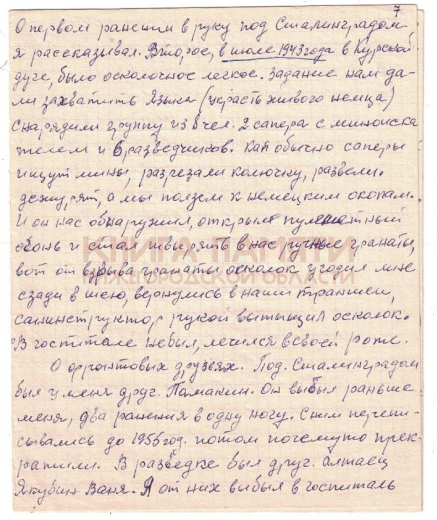 7
О первом ранении в руку под Сталинградом
я рассказывал. Второе, в июле 1943 года в Курской
дуге, было осколочное легкое. Задание нам да-
ли захватить Языка (украсть живого немца)
снарядили группу из 8 чел. 2 сапера с миноиска
телем и 6 разведчиков. Как обычно саперы
ищут мины, разрезали колючку, развели.
дежурят, а мы ползем к немецким окопам.
И он нас обнаружил, открыл пулеметный
огонь и стал швырять в нас ручные гранаты,
вот от взрыва гранаты осколок угодил мне
сзади в шею, вернулись в наши траншеи,
санинструктор рукой вытащил осколок.
В госпитале не был, лечился в своей роте.
О фронтовых друзьях. Под Сталинградом
был у меня друг. Памакин. Он выбыл раньше
меня, два ранения в одну ногу. С ним перепи-
сывались до 1956 год. потом почемуто прек-
ратили. В разведке был друг. алтаец
Якубин Ваня. Я от них выбыл в госпиталь
КНИГА ПАМЯТИ
НИЖЕГОРОДСКОЙ ОБЛАСТИ